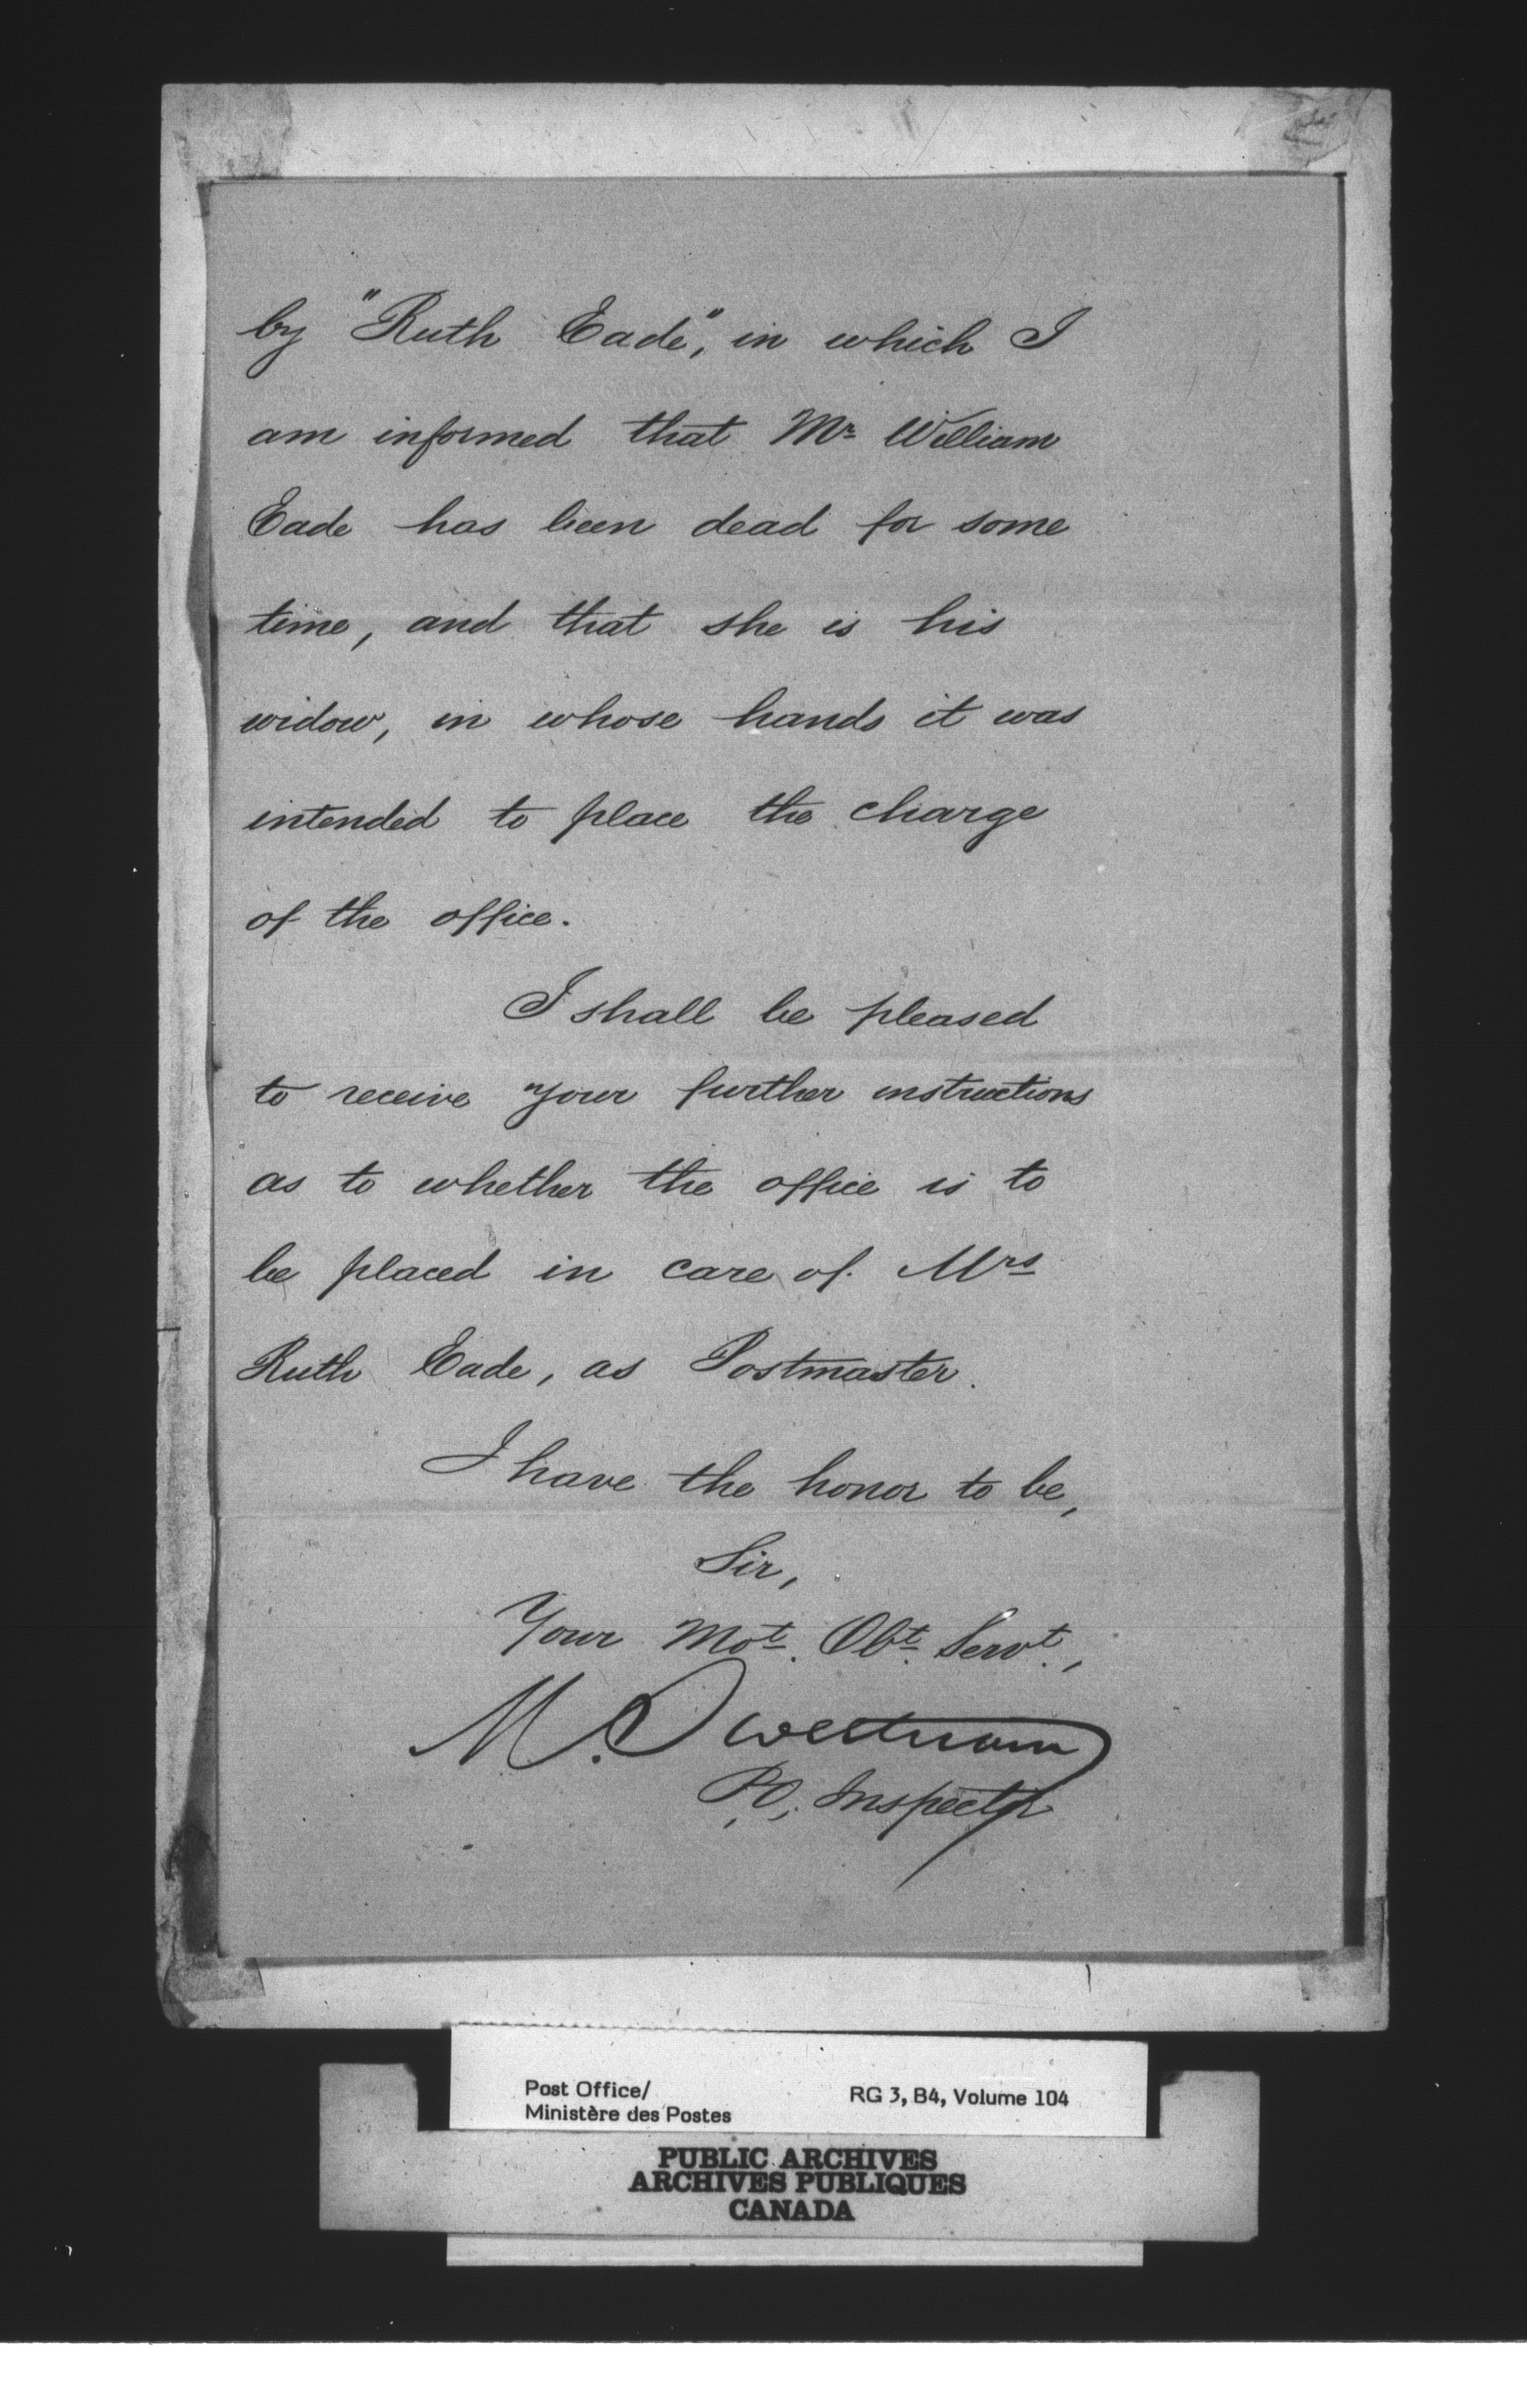 by "Ruth Eade", in which I
am informed that Mr William
Eade has been dead for some
time, and that she is his
widow, in whose hands it was
intended to place the charge
of the office.
I shall be pleased
to receive your further instructions
as to whether the office is to
be placed in care of Mrs
Ruth Eade, as Postmaster.
I have the honor to be,
Sir,
Your Mot. Obt. Servt.,
M. Sweetnam
P.O. Inspector
Post Office/
Ministère des Postes
RG 3, B4, Volume 104
PUBLIC ARCHIVES
ARCHIVES PUBLIQUES
CANADA